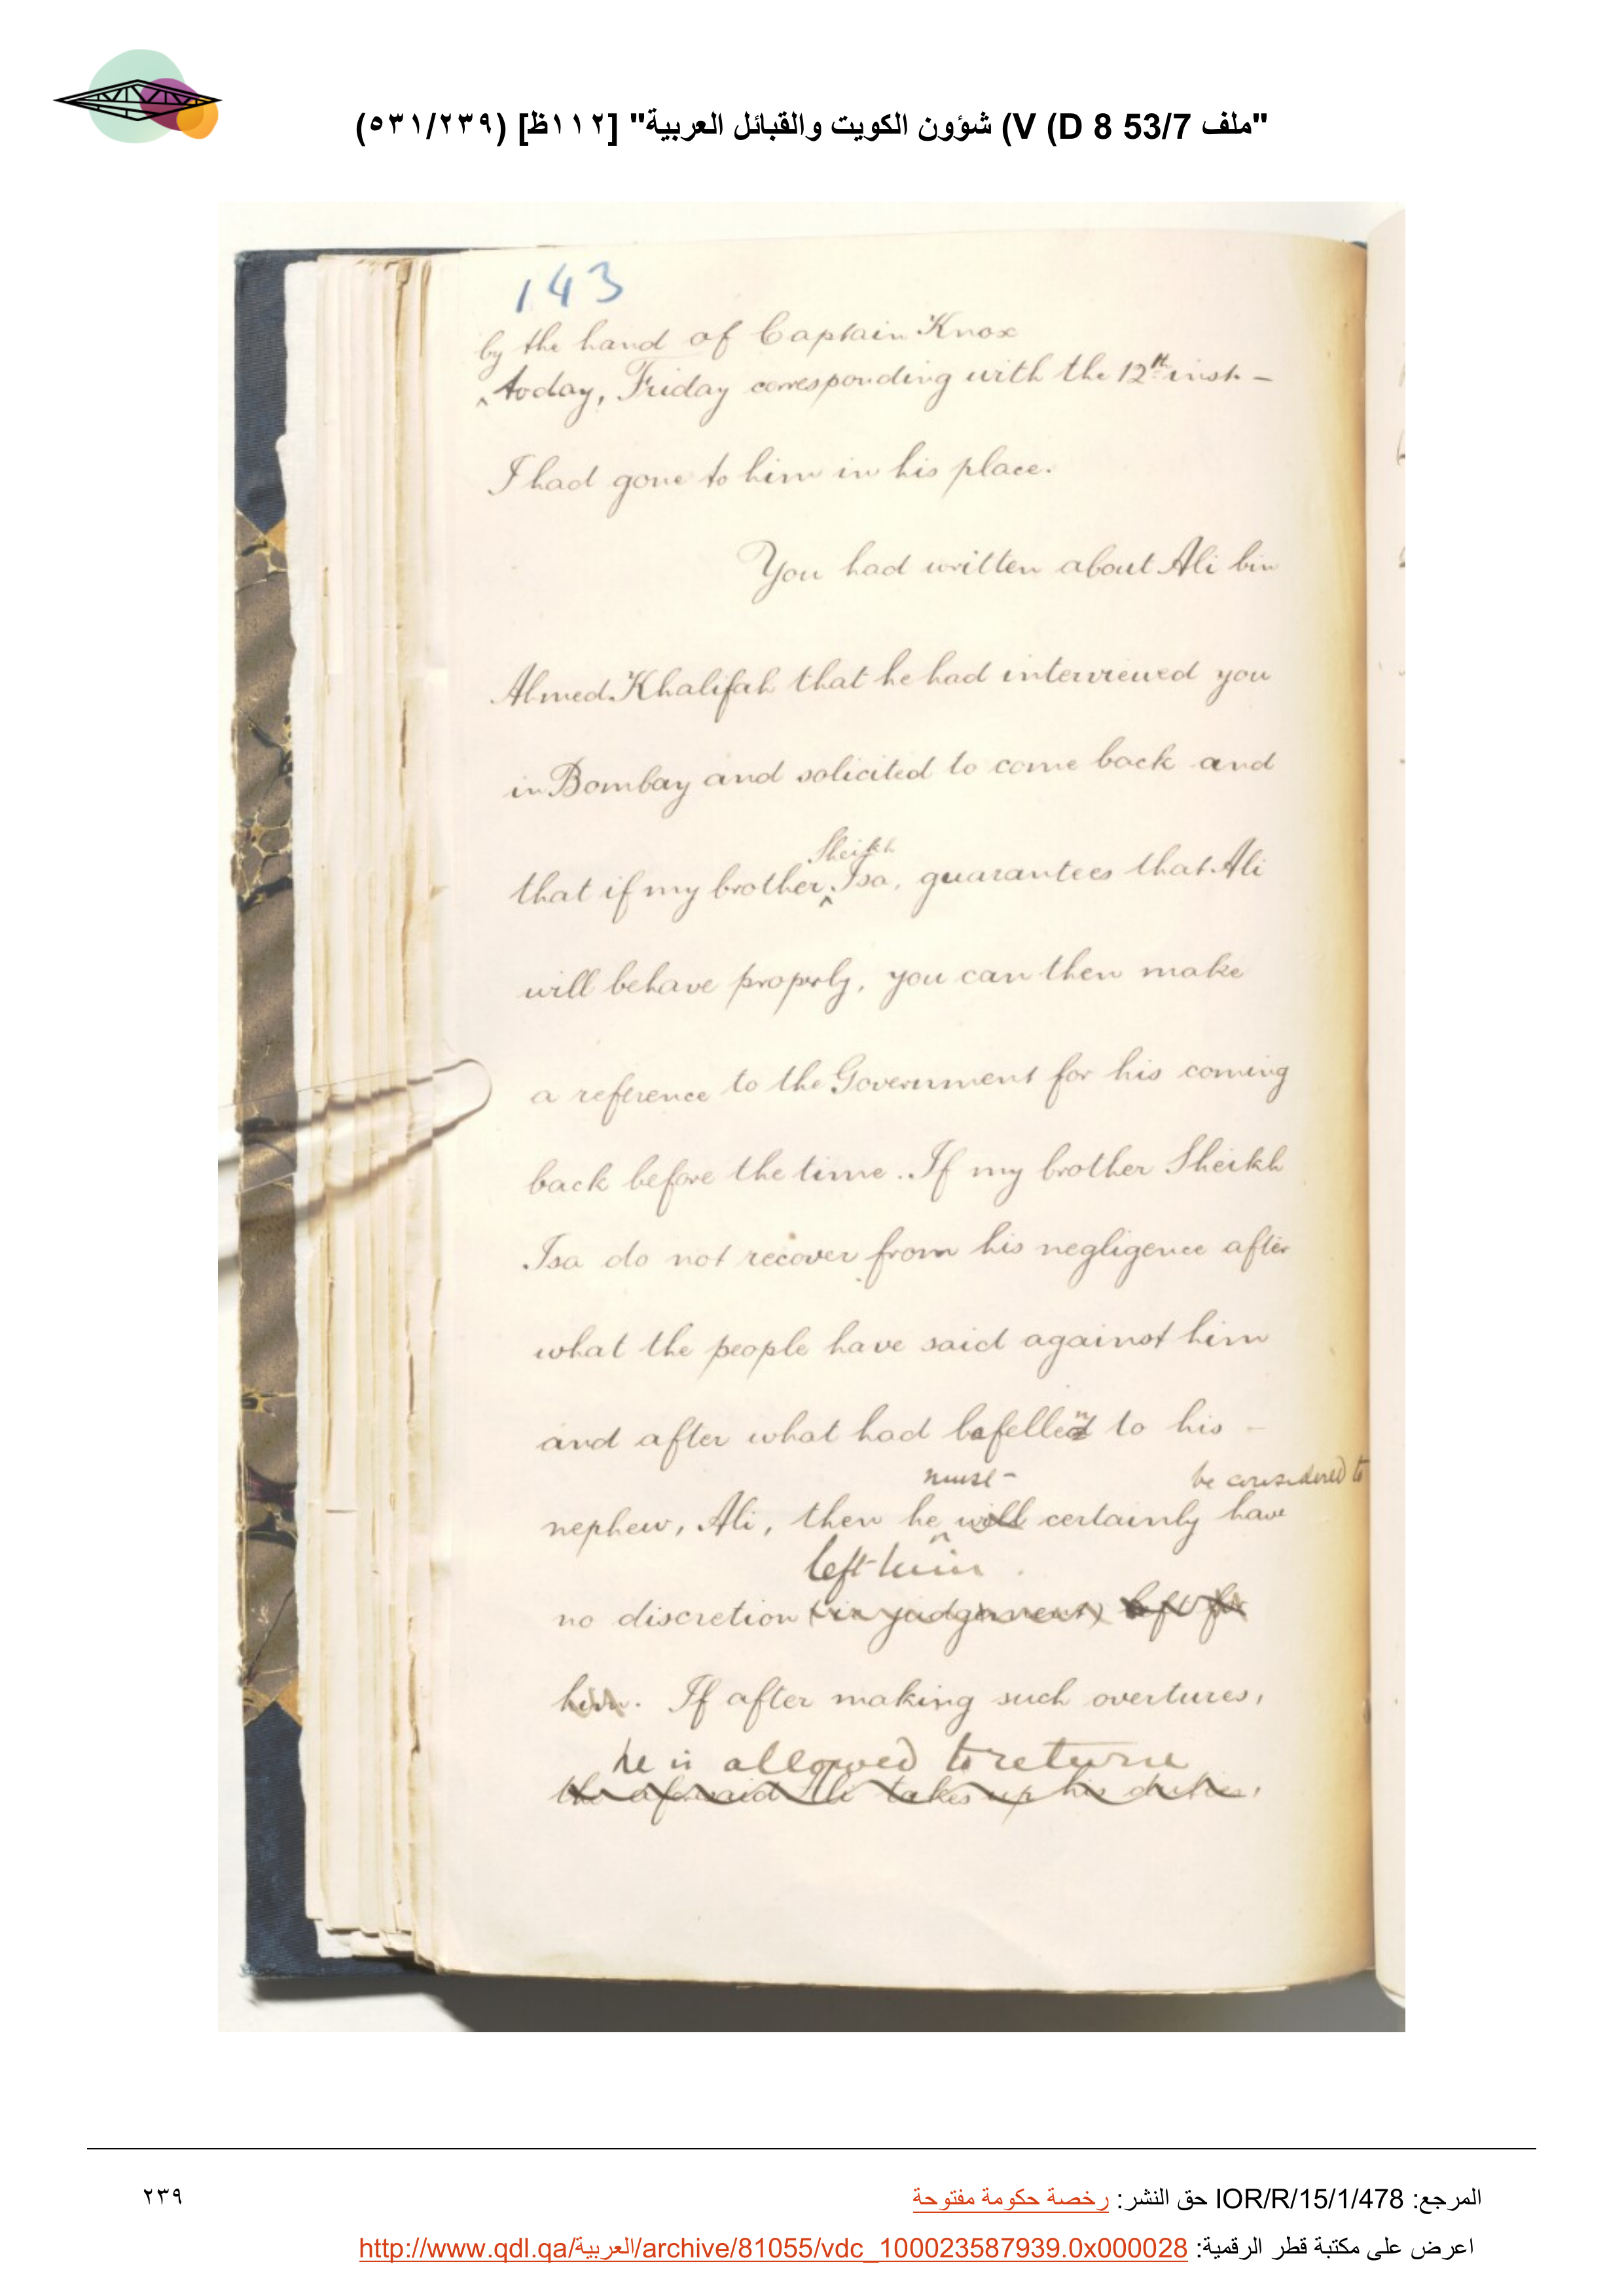 "ملف 53/7 D 8) V) شؤون الكويت والقبائل العربية" [١١٢ظ] (٥٣١/٢٣٩)
143
by the hand of Captain Knox
^ today, Friday corresponding with the 12th inst -
I had gone to him in his place.
You had written about Ali bin
Ahmed Khalifah that he had interviewed you
in Bombay and solicited to come back and
Sheikh
that if my brother ^ Isa, guarantees that Ali
will behave properly, you can then make
a reference to the Government for his coming
back before the time. If my brother Sheikh
Isa do not recover from his negligence after
what the people have said against him
and after what had befellen to his -
must be considered to
nephew, Ali, then he ^ will certainly have
left him.
no discretion (in judgment) left for
him. If after making such overtures,
he is allowed to return
the aforesaid Ali takes up his duties,
المرجع: IOR/R/15/1/478 حق النشر: رخصة حكومة مفتوحة
٢٣٩
اعرض على مكتبة قطر الرقمية: http://www.qdl.qa/العربية/archive/81055/vdc_100023587939.0x000028